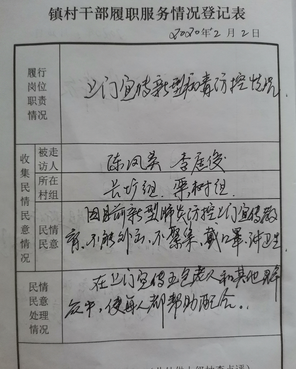 镇村干部履职服务情况登记表
2020年2月2日
履行
岗位
职责
情况
上门宣传新型病毒防控情况
收集民情民意情况
被走
访人
陈凤英 李
所在
村组
长圹组 栗树组
民情
民意
因目前新型肺炎防控上门宣传教
育 不能外出 不聚集 戴口罩 讲卫生
民情
民意
处理
情况
在上门宣传五包老人和其他群
众中 使每人都帮助配合